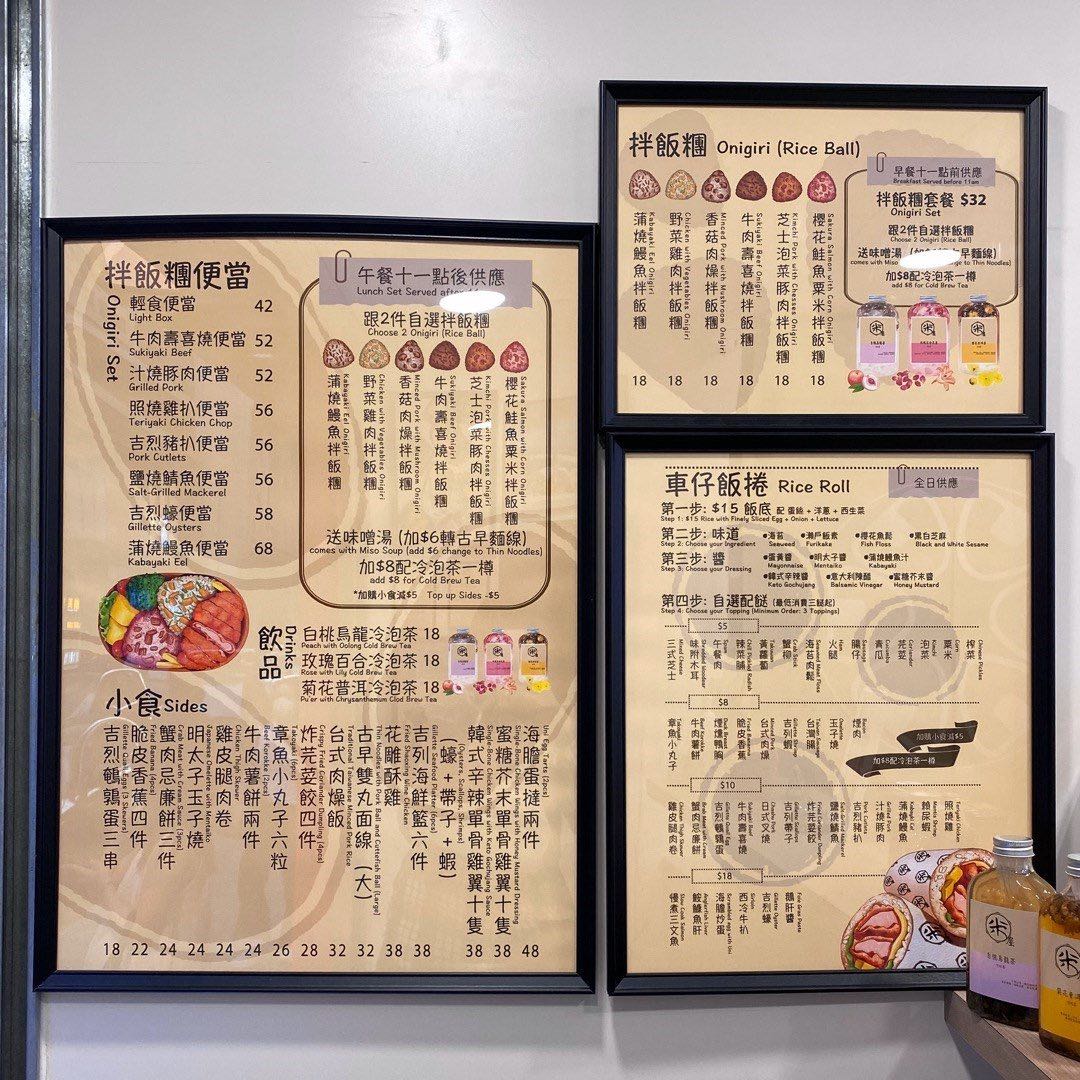 拌飯糰便當
Onigiri Set
輕食便當 42
Light Box
牛肉壽喜燒便當 52
Sukiyaki Beef
汁燒豚肉便當 52
Grilled Pork
照燒雞扒便當 56
Teriyaki Chicken Chop
吉烈豬扒便當 56
Pork Cutlets
鹽燒鯖魚便當 56
Salt-Grilled Mackerel
吉烈蠔便當 58
Gillette Oysters
蒲燒鰻魚便當 68
Kabayaki Eel
午餐十一點後供應
Lunch Set Served after
跟2件自選拌飯糰
Choose 2 Onigiri (Rice Ball)
蒲燒鰻魚拌飯糰
Kabayaki Eel Onigiri
野菜雞肉拌飯糰
Chicken with Vegetables Onigiri
香菇肉燥拌飯糰
Minced Pork with Mushroom Onigiri
牛肉壽喜燒拌飯糰
Sukiyaki Beef Onigiri
芝士泡菜豚肉拌飯糰
Kimchi Pork with Chesses Onigiri
櫻花鮭魚粟米拌飯糰
Sakura Salmon with Corn Onigiri
送味噌湯 (加$6轉古早麵線)
comes with Miso Soup (add $6 change to Thin Noodles)
加$8配冷泡茶一樽
add $8 for Cold Brew Tea
*加購小食減$5 Top up Sides -$5
飲品
Drinks
白桃烏龍冷泡茶 18
Peach with Oolong Cold Brew Tea
玫瑰百合冷泡茶 18
Rose with Lily Cold Brew Tea
菊花普洱冷泡茶 18
Pu'er with Chrysanthemum Clod Brew Tea
小食 Sides
吉烈鵪鶉蛋三串
Gillette Quail Eggs (3 Skewers)
18
脆皮香蕉四件
Fried Banana (4pcs)
22
蟹肉忌廉餅三件
Crab Meat with Cream Sauce (3pcs)
24
明太子玉子燒
Japanese Omelette with Mentaiko
24
雞皮腿肉卷
Chicken Thigh Skewer
24
牛肉薯餅兩件
Beef Korokke (2pcs)
24
章魚小丸子六粒
Takoyaki (6pcs)
26
炸芫荽餃四件
Crispy Fried Coriander Dumpling (4pcs)
28
台式肉燥飯
Traditional Taiwanese Minced Pork Rice
32
古早雙丸面線 (大)
Thin Noodles with Pork Ball and Cuttlefish Ball (Large)
32
花雕酥雞
Fried Seasoning Wine Chicken
38
吉列海鮮籃六件
(蠔+帶子+蝦)
Gillette Seafood Platter (6pcs)
(Oysters, Scallops, Shrimps)
38
韓式辛辣單骨雞翼十隻
Single-Bone Chicken Wings with Keto Gochujang Sauce
38
蜜糖芥末單骨雞翼十隻
Single-Bone Chicken Wings with Honey Mustard Dressing
38
海膽蛋撻兩件
Uni Egg Tarts (2pcs)
48
拌飯糰 Onigiri (Rice Ball)
蒲燒鰻魚拌飯糰
Kabayaki Eel Onigiri
18
野菜雞肉拌飯糰
Chicken with Vegetables Onigiri
18
香菇肉燥拌飯糰
Minced Pork with Mushroom Onigiri
18
牛肉壽喜燒拌飯糰
Sukiyaki Beef Onigiri
18
芝士泡菜豚肉拌飯糰
Kimchi Pork with Chesses Onigiri
18
櫻花鮭魚粟米拌飯糰
Sakura Salmon with Corn Onigiri
18
早餐十一點前供應
Breakfast Served before 11am
拌飯糰套餐 $32
Onigiri Set
跟2件自選拌飯糰
Choose 2 Onigiri (Rice Ball)
送味噌湯 早麵線)
comes with Miso change to Thin Noodles)
加$8配冷泡茶一樽
add $8 for Cold Brew Tea
車仔飯捲 Rice Roll
全日供應
第一步: $15 飯底 配 蛋絲 + 洋蔥 + 西生菜
Step 1: $15 Rice with Finely Sliced Egg + Onion + Lettuce
第二步: 味道
Step 2: Choose your Ingredient
•海苔 •瀨戶飯素 •櫻花魚鬆 •黑白芝麻
Seaweed Furikake Fish Floss Black and White Sesame
第三步: 醬
Step 3: Choose your Dressing
•蛋黃醬 •明太子醬 •蒲燒鰻魚汁
Mayonnaise Mentaiko Kabayaki
•韓式辛辣醬 •意大利陳醋 •蜜糖芥末醬
Keto Gochujang Balsamic Vinegar Honey Mustard
第四步: 自選配餸 (最低消費三餸起)
Step 4: Choose your Topping (Minimum Order: 3 Toppings)
$5
三式芝士
Mixed Cheese
味附木耳
午餐肉
Spam
辣菜脯
Chili Pickled Radish
黃蘿蔔
蟹柳
Crab Stick
海苔肉鬆
Seaweed Meat Floss
火腿
Ham
腸仔
Sausage
青瓜
Cucumber
芫荽
Coriander
泡菜
Kimchi
粟米
Corn
榨菜
Chinese Pickles
$8
章魚小丸子
Takoyaki
牛肉薯餅
Beef Korokke
煙燻鴨胸
脆皮香蕉
Fried Banana
台式肉燥
Minced Pork
吉列蝦
Gillette Shrimp
台灣腸
Taiwan Sausage
玉子燒
Omelette
煙肉
Bacon
加購小食減$5
加$8配冷泡茶一樽
$10
雞皮腿肉卷
Chicken Thigh Skewer
蟹肉忌廉餅
吉烈鵪鶉蛋
Gillette Quail Eggs
牛肉壽喜燒
Sukiyaki Beef
日式叉燒
Chashu Pork
吉列帶子
炸芫荽餃
Fried Coriander Dumpling
鹽燒鯖魚
Salt-Grilled Mackerel
吉烈豬扒
Pork Cutlets
汁燒豚肉
Grilled Pork
蒲燒鰻魚
Kabayaki Eel
賴尿蝦
Mantis Shrimp
照燒雞
Teriyaki Chicken
$18
慢煮三文魚
Slow Cook Salmon
鮟鱇魚肝
Anglerfish Liver
海膽炒蛋
Scrambled egg with Uni
西冷牛扒
Sirloin
吉烈蠔
Gillette Oyster
鵝肝醬
Foie Gras Paste
米屋
白桃烏龍茶
米